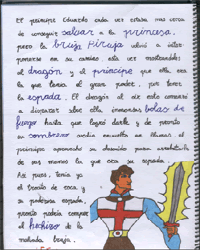 El príncipe Eduardo cada vez estaba más cerca
de conseguir salvar a la princesa,
pero la bruja Piruja volvió a inter
ponerse en su camino, esta vez mostrándoles
al dragón y al príncipe que ella era
la que tenía el gran poder, por tener
la espada. El dragón al ver esto comenzó
a disparar sobre ella inmensas bolas de
fuego hasta que logró darle y de pronto
su sombrero
príncipe aprovechó su descuido para arrebatarle
de sus manos la que era su espada.
Así pues, tenía ya
el
su poderosa espada,
pronto podría romper
el hechizo de la
malvada bruja.